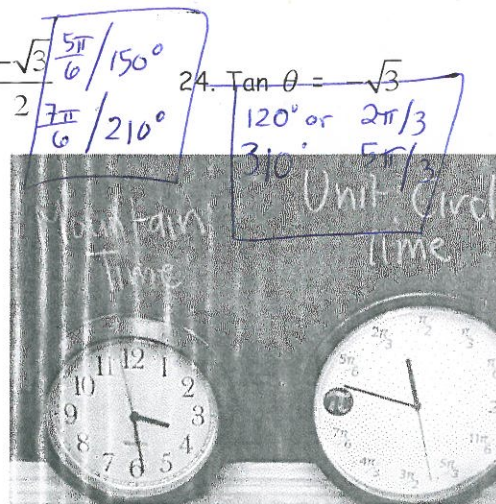 -√3/2
5π/6 / 150°
7π/6 / 210°
24. Tan θ = -√3
120° or 2π/3
310° 5π/3
Mountain Time
Unit Circl
Time
12
11 1
10 2
9 3
8 4
7 6 5
π/2
2π/3 π/3
5π/6
π
7π/6 11π/6
4π/3 5π/3
3π/2